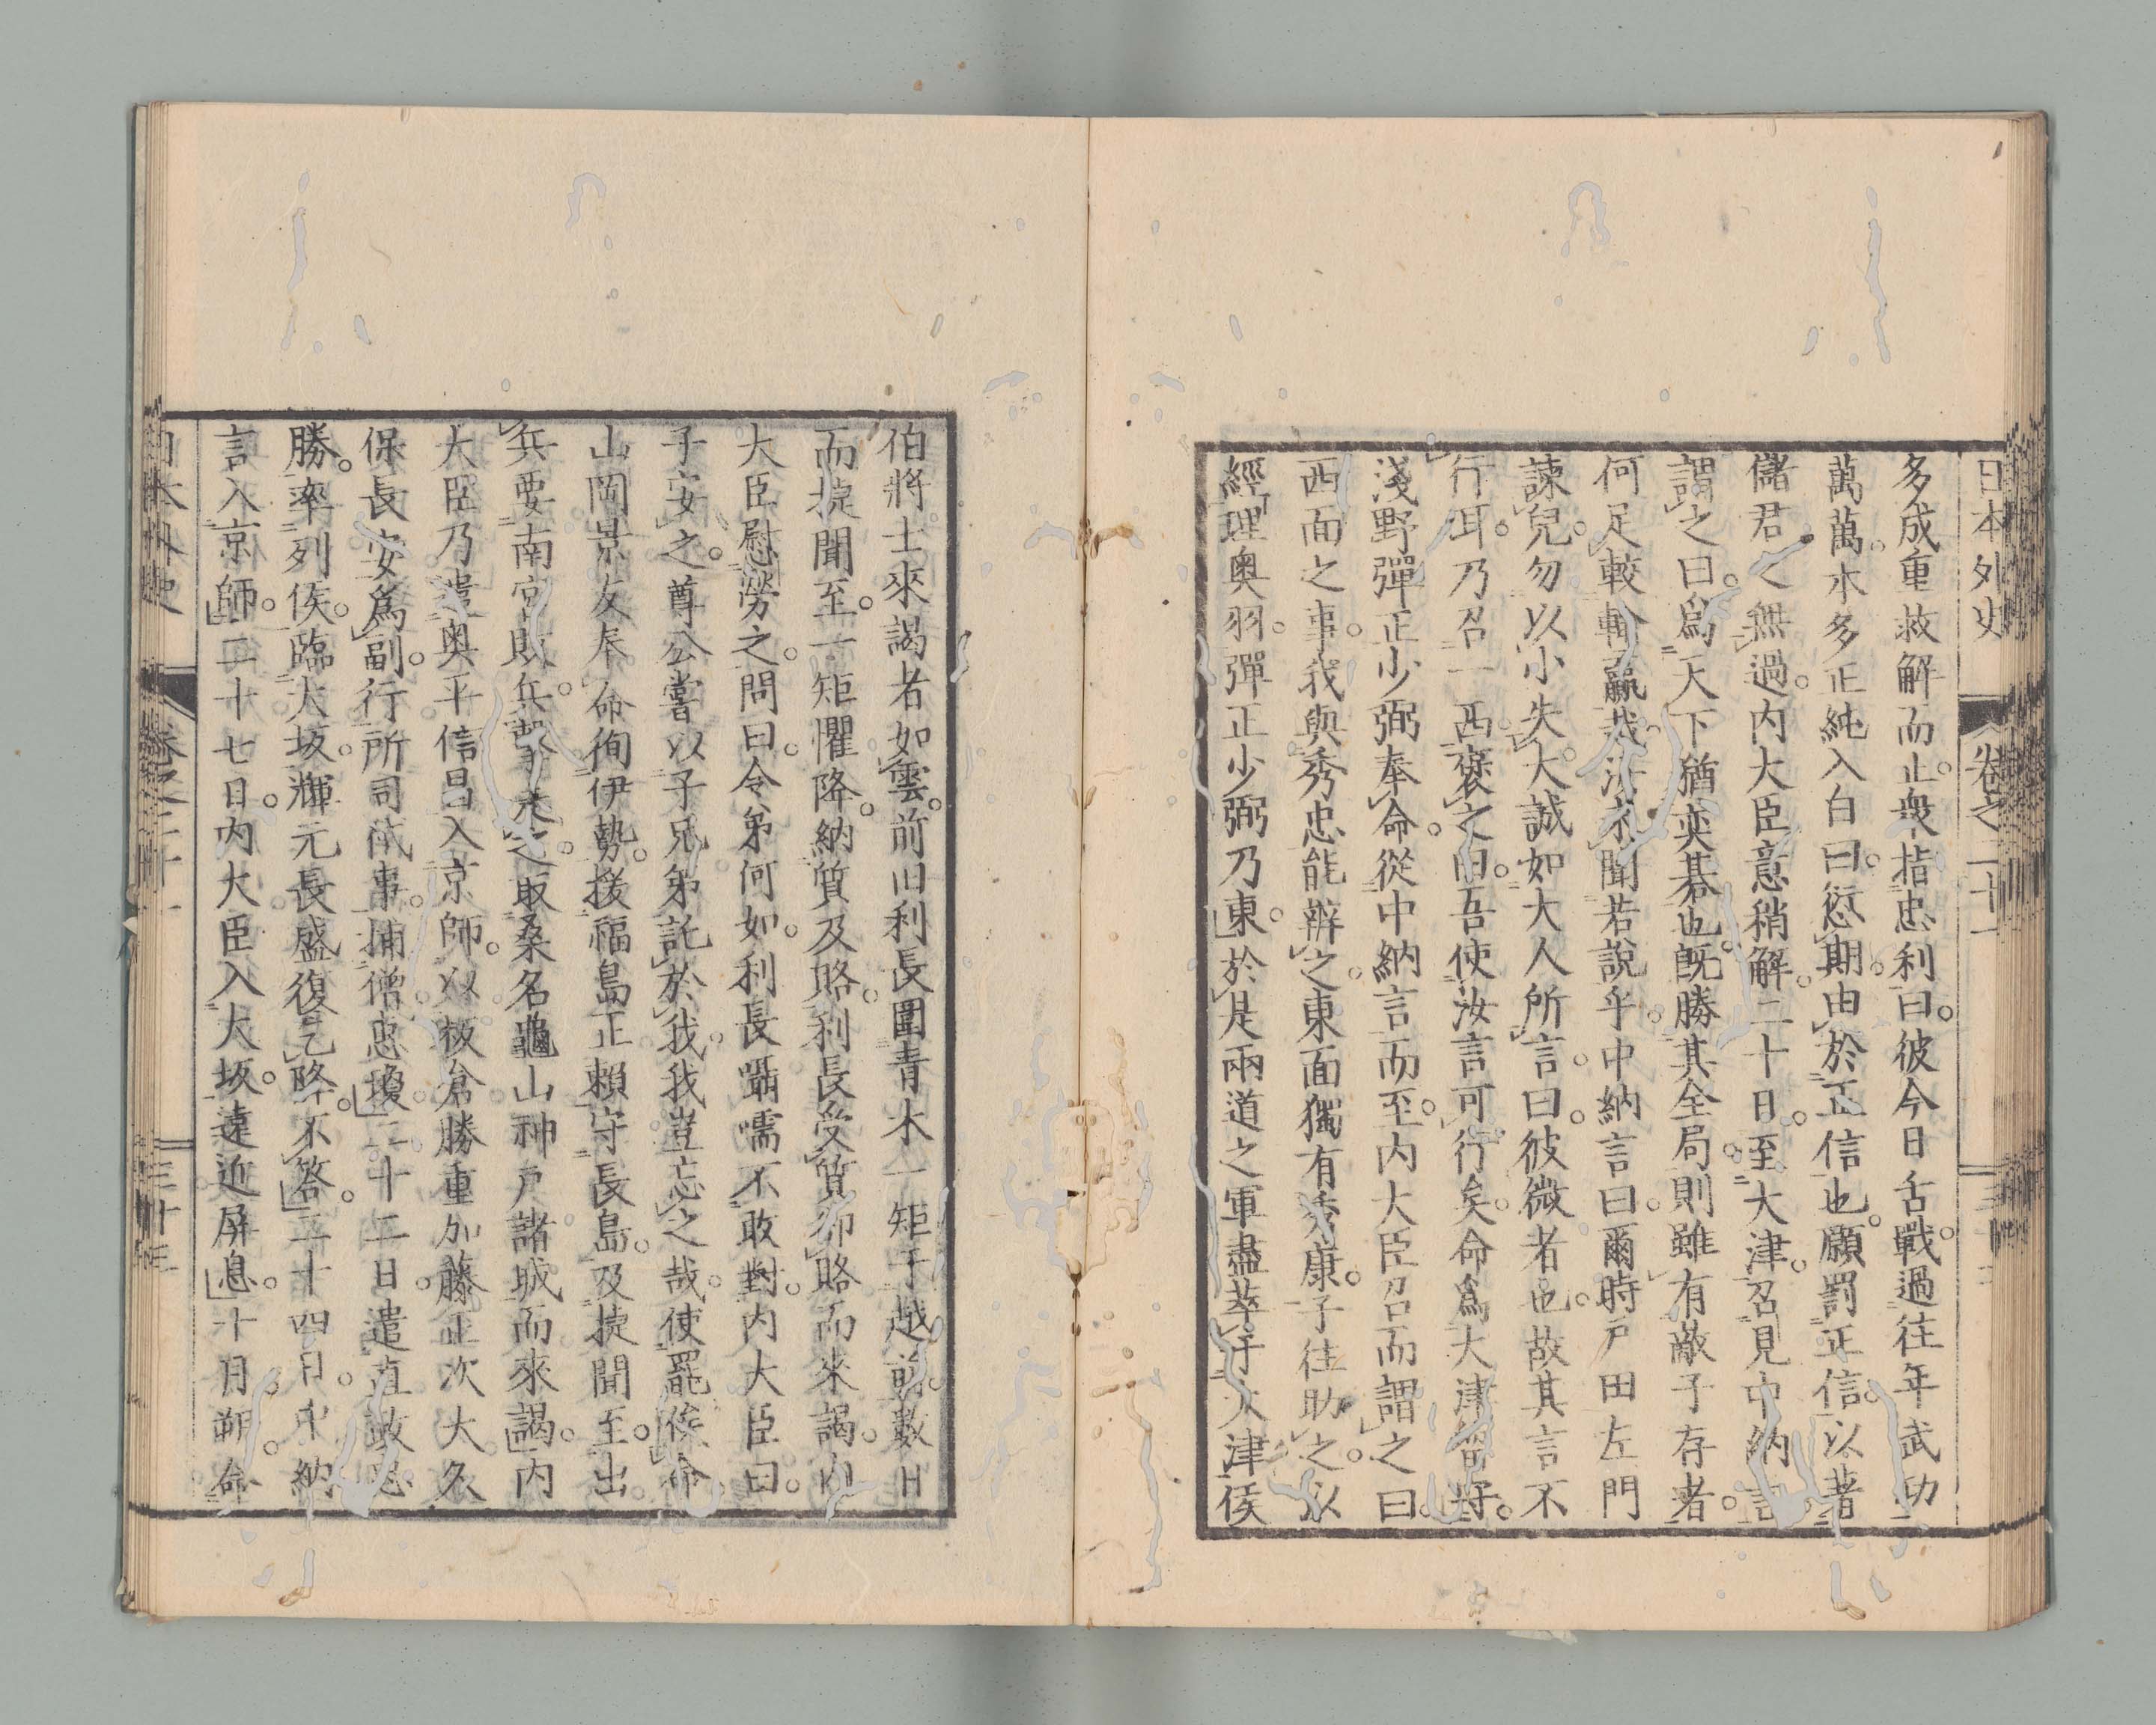 日本外史 卷之二十一
多成重救解而止。衆指忠利曰。彼今日舌戰。過往年武功
萬萬。本多正純入白曰。愆期。由於正信也。願罰正信。以著
儲君之無過。内大臣意稍解。二十日。至大津。召見中納言
謂之曰。爲天下猶奕碁也。既勝其全局。則雖有敵子存者。
何足較輸贏哉。汝不聞若說乎。中納言曰。爾時戸田左門
諫兒。勿以小失大。誠如大人所言。曰。彼微者也。故其言不
行耳。乃召一西褒之曰。吾使汝言可行矣。命爲大津留將。
淺野彈正少弼奉命。從中納言而至。内大臣召而謂之曰。
西面之事。我與秀忠能辨之。東面獨有秀康。子往助之。以
經理奥羽。彈正少弼乃東。於是兩道之軍盡萃于大津。侯
伯將士來謁者如雲。前田利長圍青木一矩于越前。數日
而捷聞至。一矩懼降。納質及賂。利長受質卻賂而來謁。内
大臣慰勞之。問曰。令弟何如。利長囁嚅不敢對。内大臣曰。
子安之。尊公嘗以子兄弟託於我。我豈忘之哉。使罷俟命
山岡景友奉命徇伊勢。援福島正賴守長島。及捷聞至。出
兵要南宮敗兵。擊走之。取桑名龜山神戸諸城而來謁。内
大臣乃遣奥平信昌入京師。以板倉勝重加藤正次大久
保長安爲副。行所司代事。捕僧惠瓊。二十二日。遣直政忠
勝。率列侯。臨大坂。輝元長盛復乞降。不答。二十四日。中納
言入京師。二十七日。内大臣入大坂。遠近屏息。十月朔。命
日本外史 卷之二十一